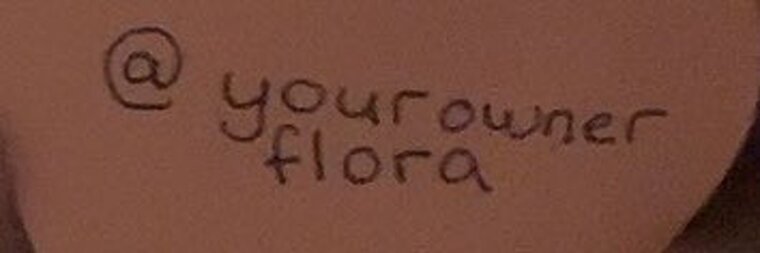 @ yourowner
flora